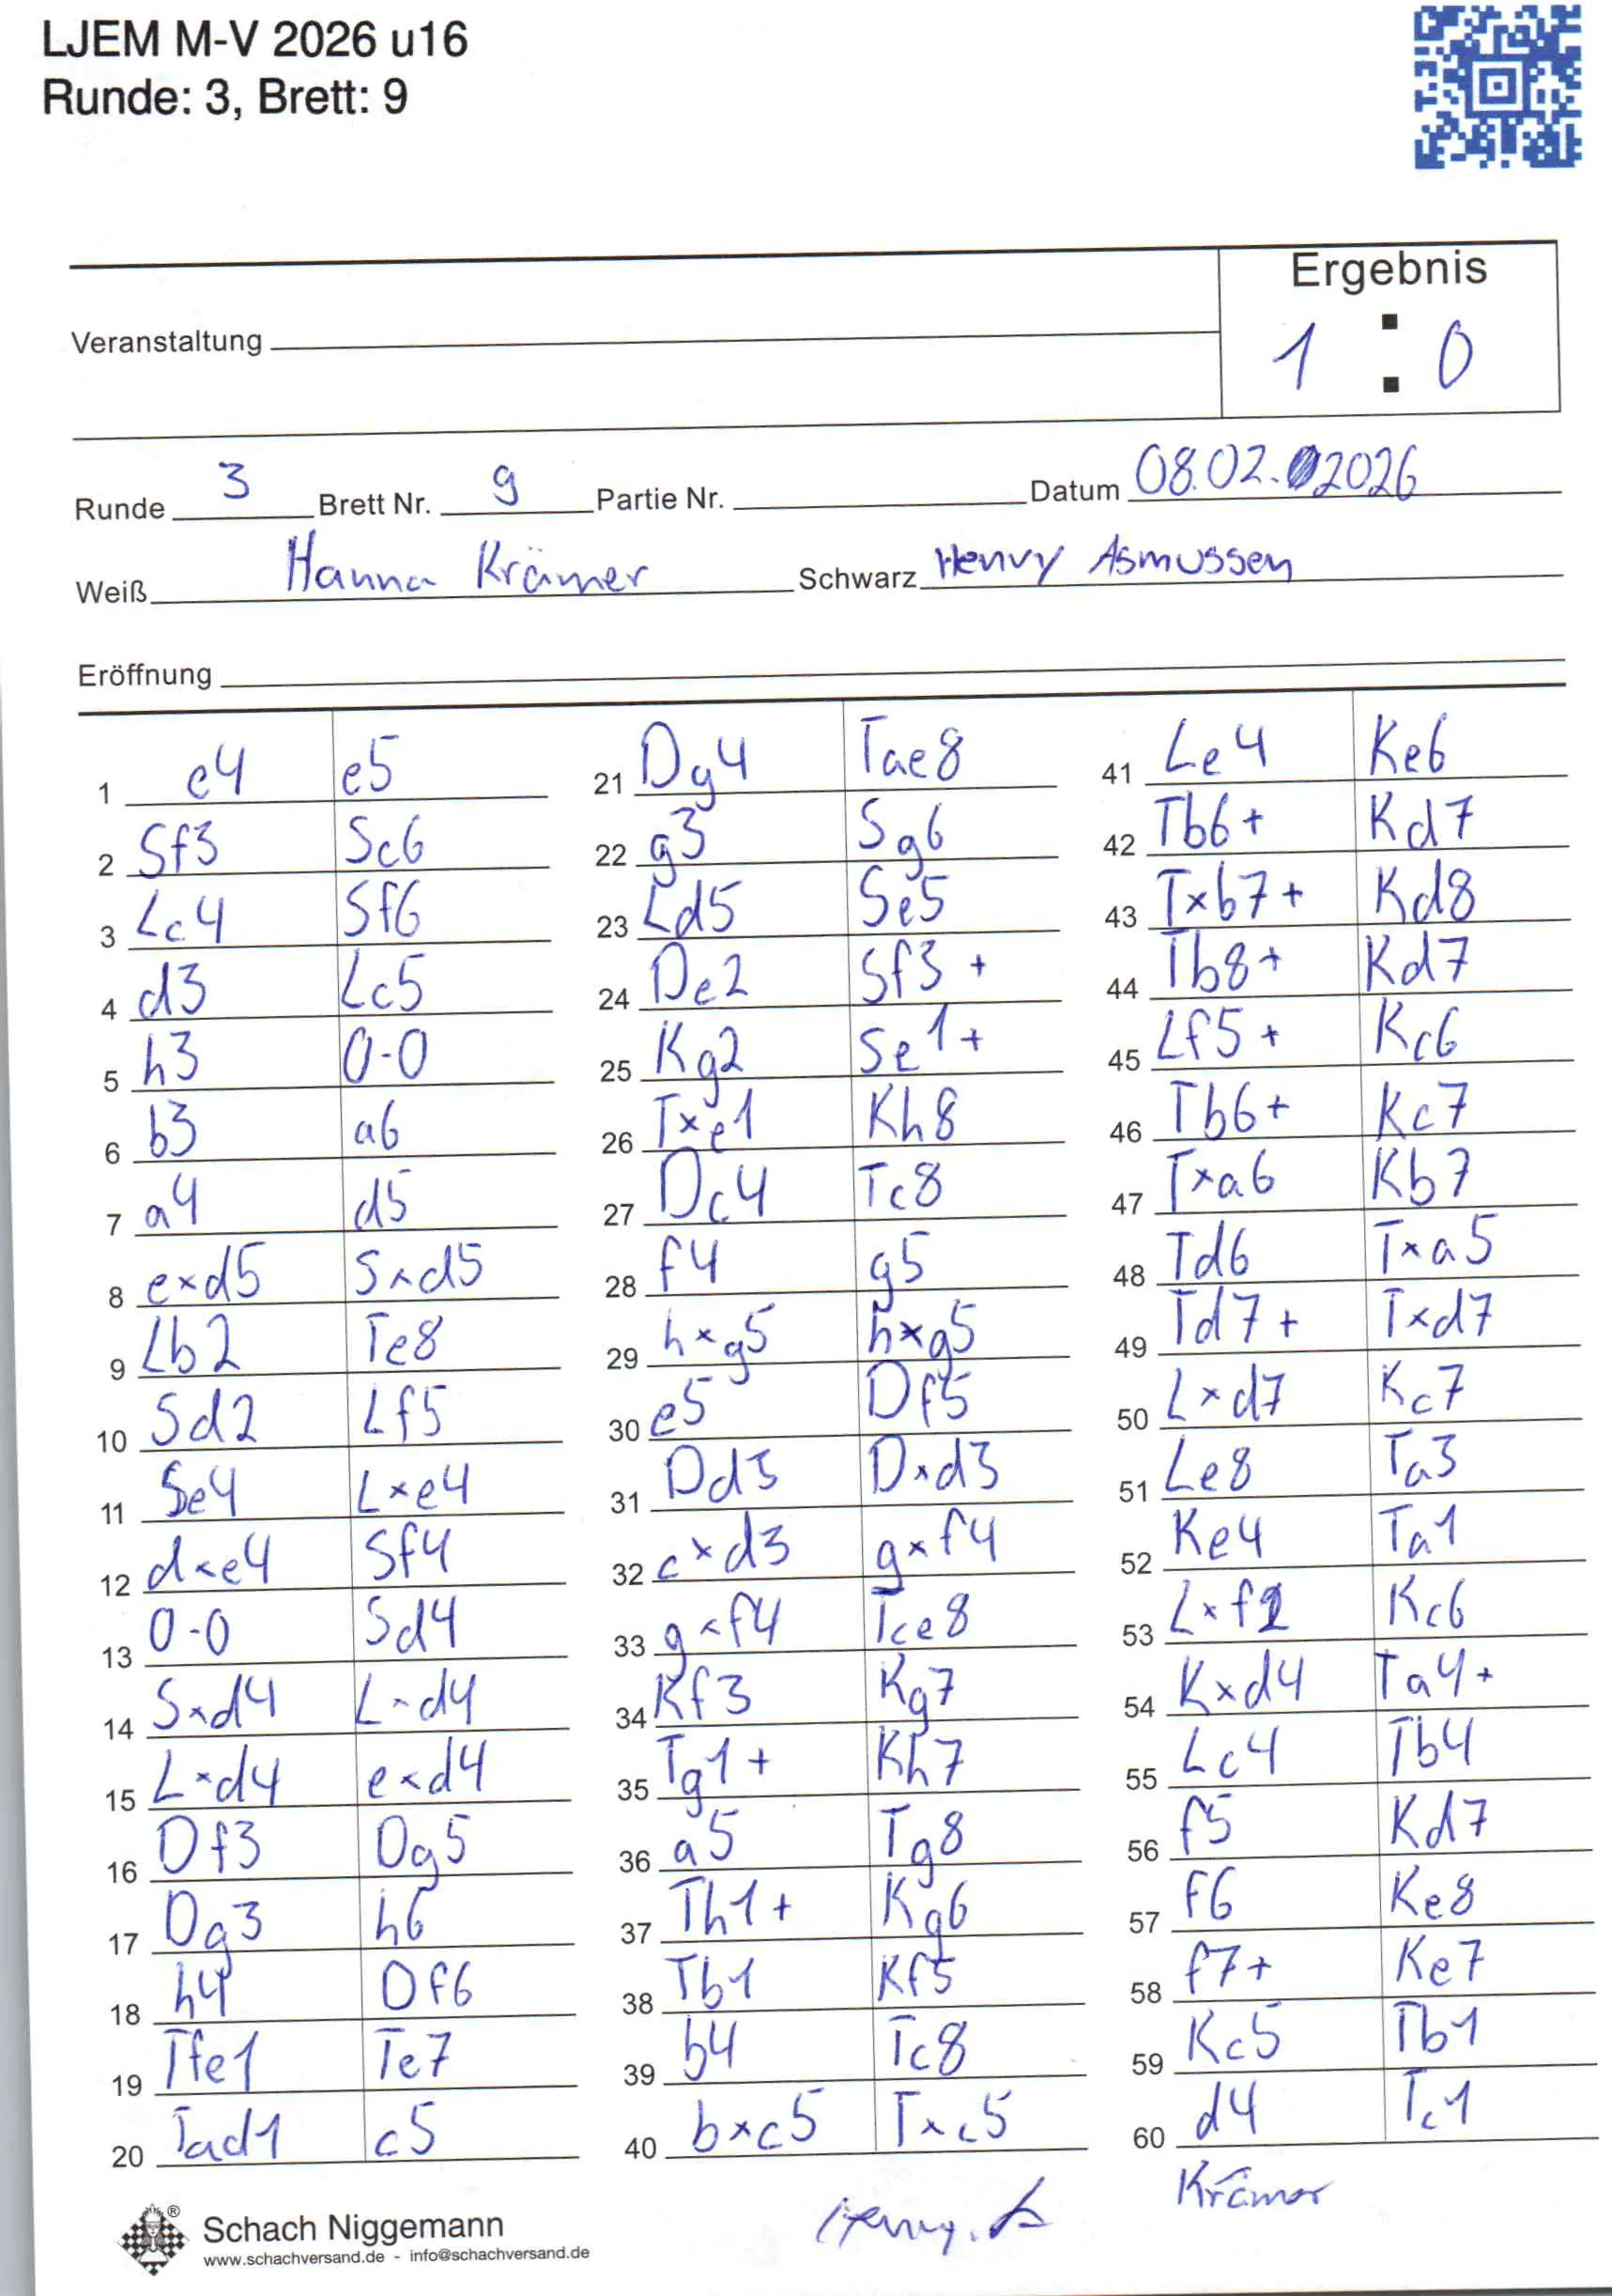 LJEM M-V 2026 u16
Runde: 3, Brett: 9
Ergebnis
1 : 0
Veranstaltung
Runde 3 Brett Nr. 9 Partie Nr. Datum 08.02.2026
Weiß Hanna Krämer Schwarz Henry Asmussen
Eröffnung
1 e4 e5
2 Sf3 Sc6
3 Lc4 Sf6
4 d3 Lc5
5 h3 0-0
6 b3 a6
7 a4 d5
8 exd5 Sxd5
9 Lb2 Te8
10 Sd2 Lf5
11 Se4 Lxe4
12 dxe4 Sf4
13 0-0 Sd4
14 Sxd4 Lxd4
15 Lxd4 exd4
16 Df3 Dg5
17 Dg3 h6
18 h4 Df6
19 Tfe1 Te7
20 Tad1 c5
21 Dg4 Tae8
22 g3 Sg6
23 Ld5 Se5
24 De2 Sf3+
25 Kg2 Se1+
26 Txe1 Kh8
27 Dc4 Tc8
28 f4 g5
29 hxg5 hxg5
30 e5 Df5
31 Dd3 Dxd3
32 cxd3 gxf4
33 gxf4 Tce8
34 Kf3 Kg7
35 Tg1+ Kh7
36 a5 Tg8
37 Th1+ Kg6
38 Tb1 Kf5
39 b4 Tc8
40 bxc5 Txc5
41 Le4 Ke6
42 Tb6+ Kd7
43 Txb7+ Kd8
44 Tb8+ Kd7
45 Lf5+ Kc6
46 Tb6+ Kc7
47 Txa6 Kb7
48 Td6 Txa5
49 Td7+ Txd7
50 Lxd7 Kc7
51 Le8 Ta3
52 Ke4 Ta1
53 Lxf7 Kc6
54 Kxd4 Ta4+
55 Lc4 Tb4
56 f5 Kd7
57 f6 Ke8
58 f7+ Ke7
59 Kc5 Tb1
60 d4 Tc1
Henry. A Krämer
Schach Niggemann
www.schachversand.de - info@schachversand.de